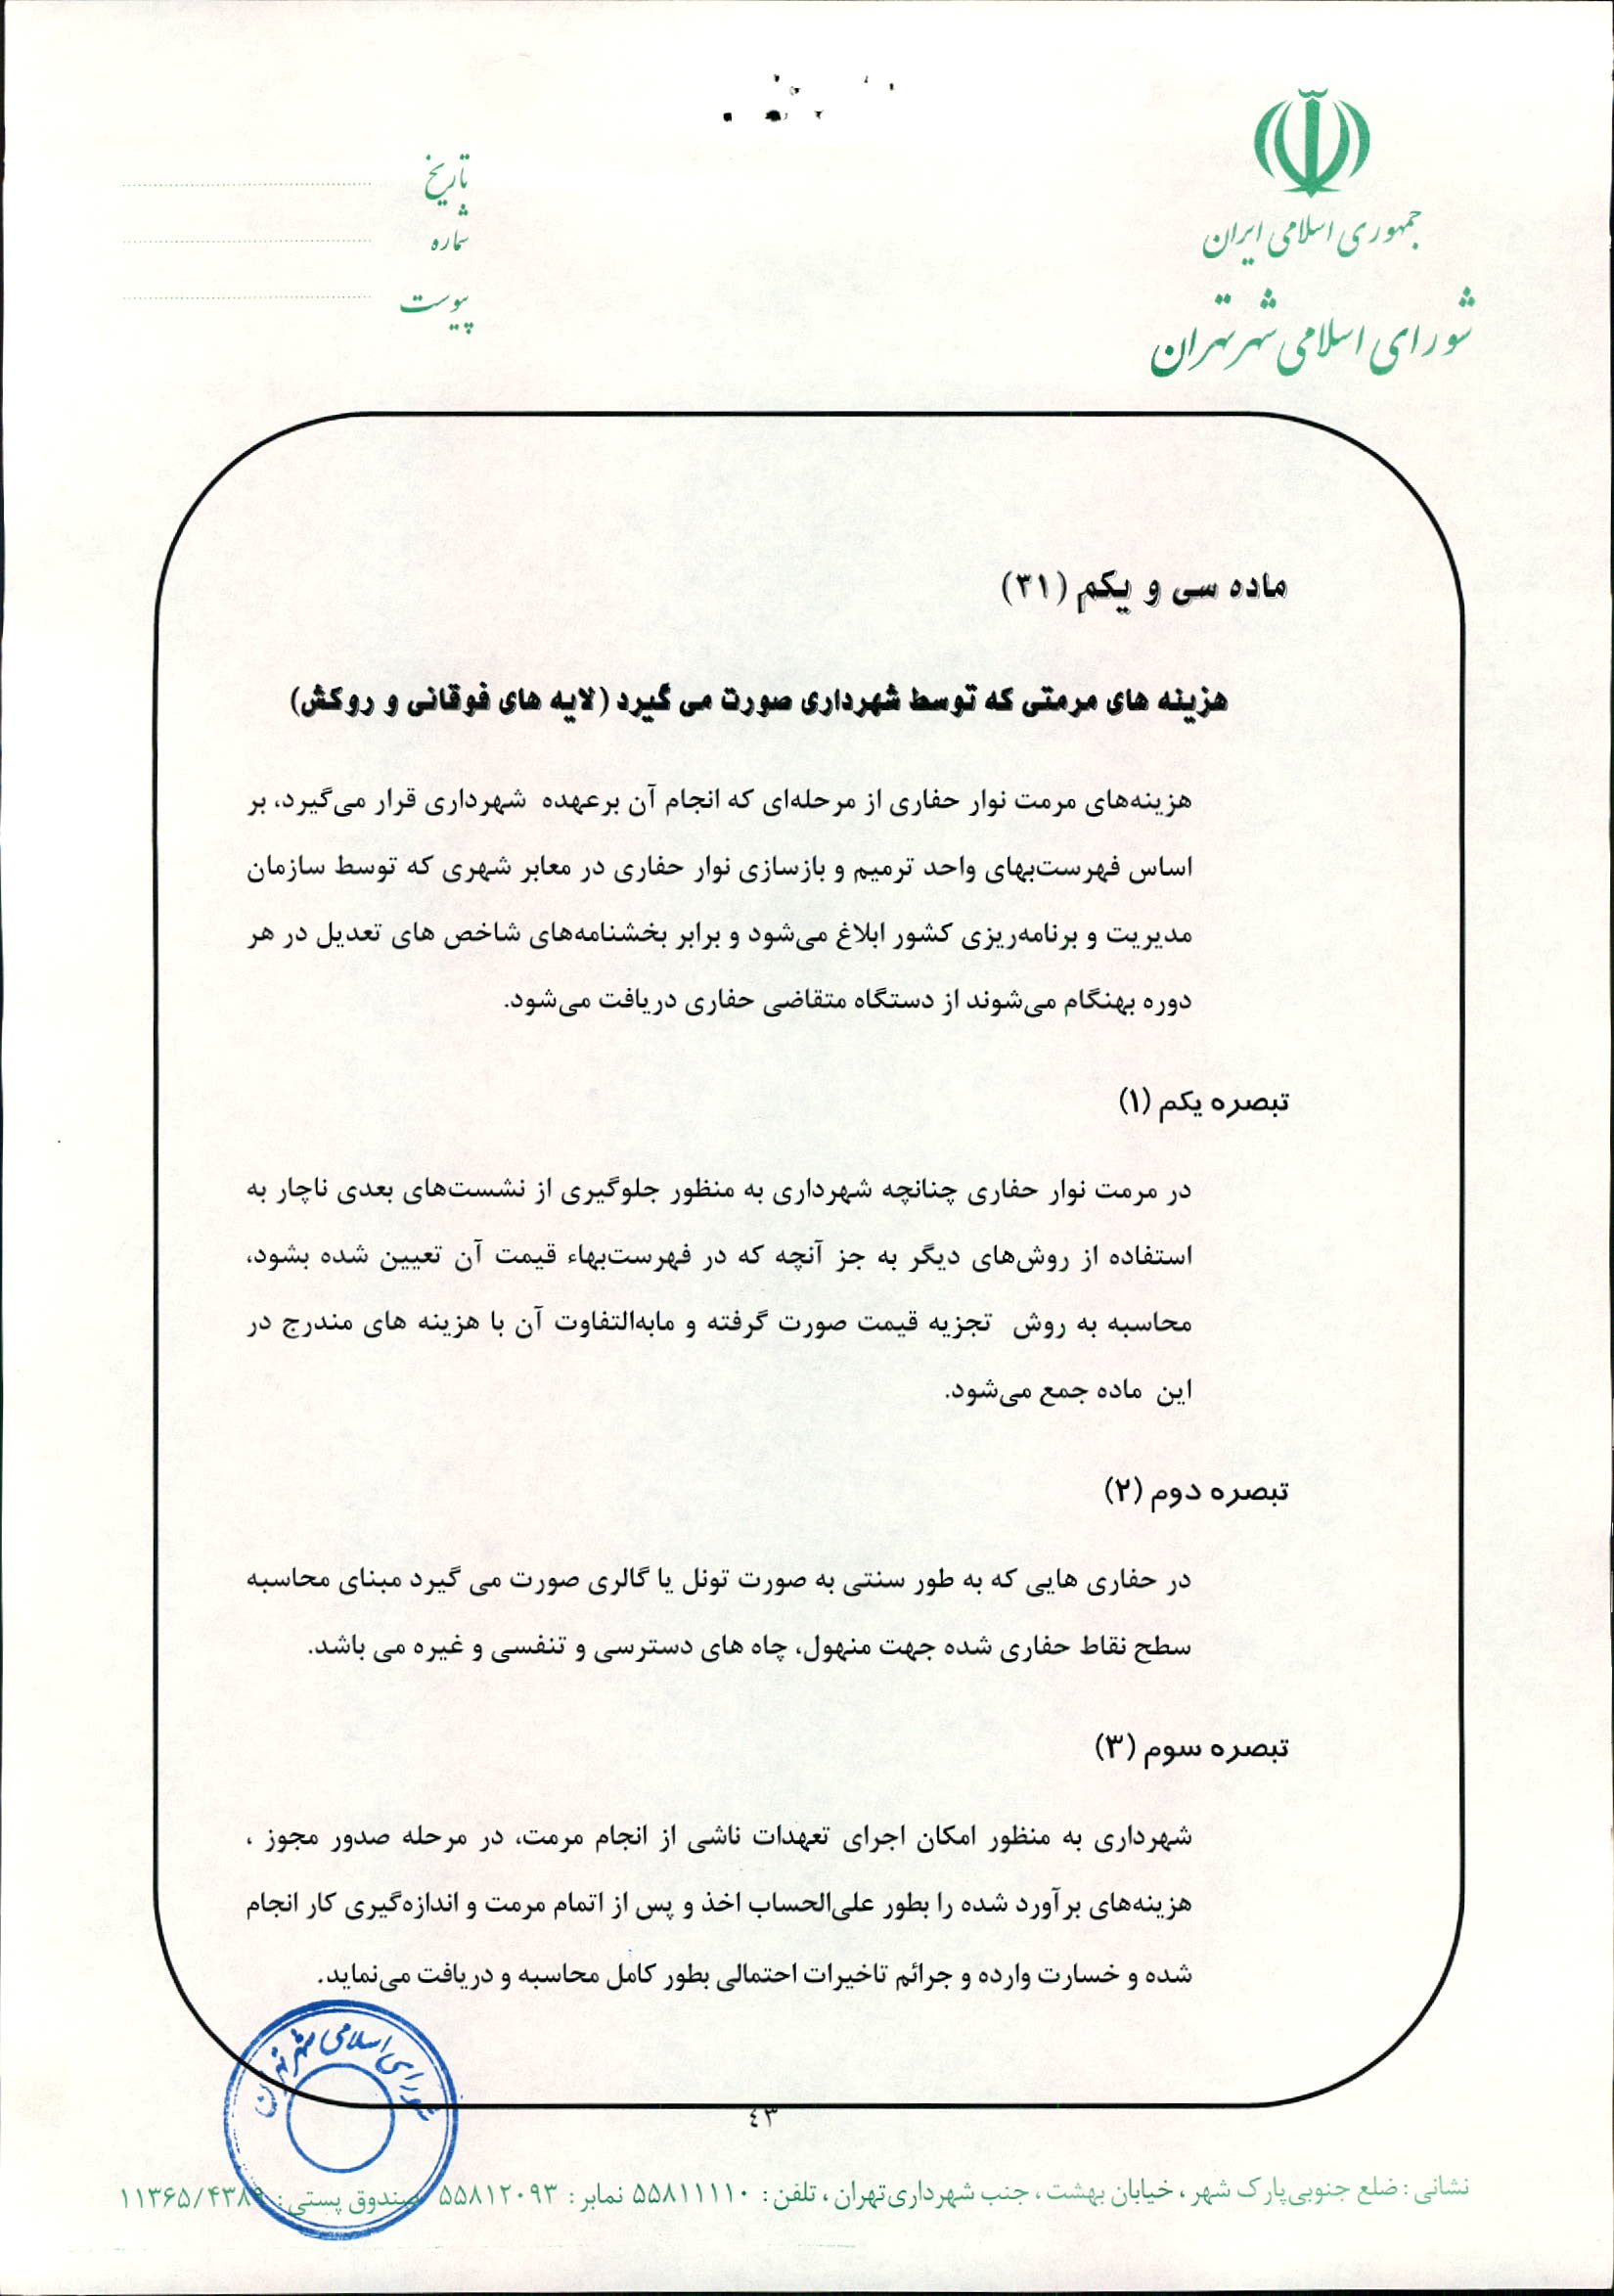 جمهوری اسلامی ایران
شورای اسلامی شهر تهران
تاریخ
شماره
پیوست
ماده سی و یکم (۳۱)
هزینه های مرمتی که توسط شهرداری صورت می گیرد (لایه های فوقانی و روکش)
هزینه‌های مرمت نوار حفاری از مرحله‌ای که انجام آن برعهده شهرداری قرار می‌گیرد، بر
اساس فهرست‌بهای واحد ترمیم و بازسازی نوار حفاری در معابر شهری که توسط سازمان
مدیریت و برنامه‌ریزی کشور ابلاغ می‌شود و برابر بخشنامه‌های شاخص های تعدیل در هر
دوره بهنگام می‌شوند از دستگاه متقاضی حفاری دریافت می‌شود.
تبصره یکم (۱)
در مرمت نوار حفاری چنانچه شهرداری به منظور جلوگیری از نشست‌های بعدی ناچار به
استفاده از روش‌های دیگر به جز آنچه که در فهرست‌بهاء قیمت آن تعیین شده بشود،
محاسبه به روش تجزیه قیمت صورت گرفته و مابه‌التفاوت آن با هزینه های مندرج در
این ماده جمع می‌شود.
تبصره دوم (۲)
در حفاری هایی که به طور سنتی به صورت تونل یا گالری صورت می گیرد مبنای محاسبه
سطح نقاط حفاری شده جهت منهول، چاه های دسترسی و تنفسی و غیره می باشد.
تبصره سوم (۳)
شهرداری به منظور امکان اجرای تعهدات ناشی از انجام مرمت، در مرحله صدور مجوز ،
هزینه‌های برآورد شده را بطور علی‌الحساب اخذ و پس از اتمام مرمت و اندازه‌گیری کار انجام
شده و خسارت وارده و جرائم تاخیرات احتمالی بطور کامل محاسبه و دریافت می‌نماید.
شورای اسلامی شهر تهران
٤٣
نشانی : ضلع جنوبی پارک شهر ، خیابان بهشت ، جنب شهرداری تهران ، تلفن : ۵۵۸۱۱۱۱۰ نمابر : ۵۵۸۱۲۰۹۳ صندوق پستی : ۱۱۳۶۵/۴۳۸۹